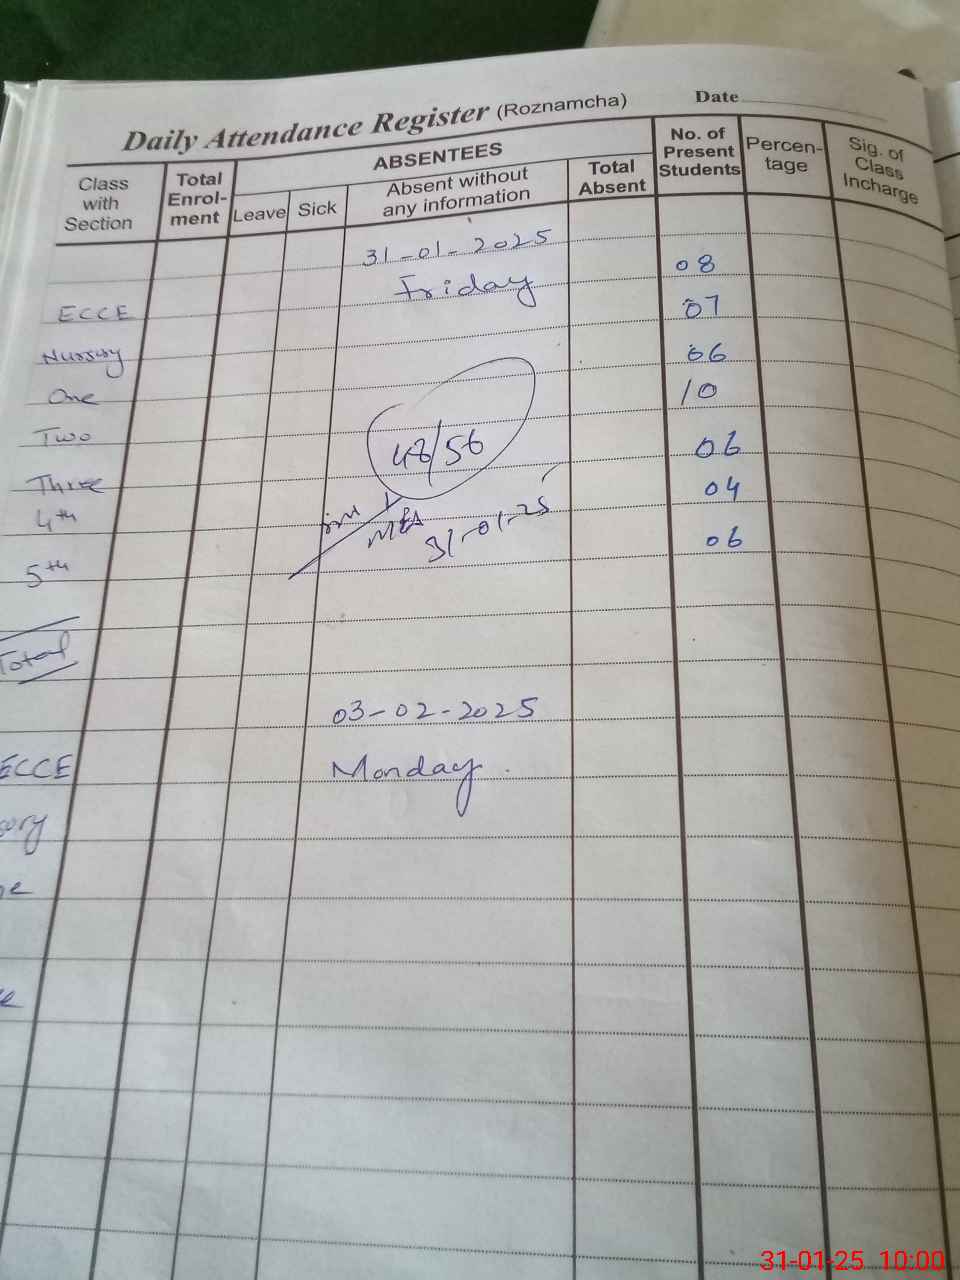 Daily Attendance Register (Roznamcha) Date
Class with Section
Total Enrol-ment
ABSENTEES
Leave
Sick
Absent without any information
Total Absent
No. of Present Students
Percen-tage
Sig. of Class Incharge
31-01-2025
08
ECCE Friday 07
Nursury 06
One 10
Two 48/56 06
Three 04
4th MEA 31-01-25 06
5th
Total
03-02-2025
ECCE Monday
31-01-25 10:00